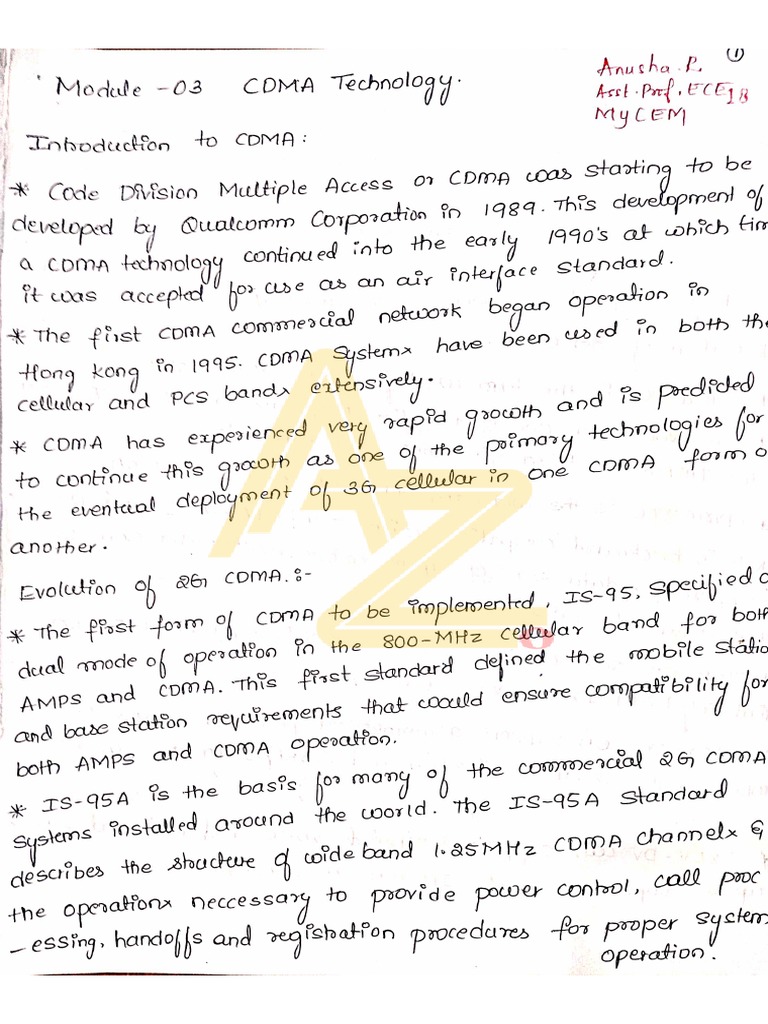 ①
Anusha.R.
Asst.Prof, ECE
MyCEM
Module -03 CDMA Technology.
Introduction to CDMA:
* Code Division Multiple Access or CDMA was starting to be
developed by Qualcomm Corporation in 1989. This development of
a CDMA technology continued into the early 1990's at which tim
it was accepted for use as an air interface standard.
* The first CDMA commercial network began operation in
Hong Kong in 1995. CDMA Systems have been used in both the
cellular and PCS bands extensively.
* CDMA has experienced very rapid growth and is predicted
to continue this growth as one of the primary technologies for
the eventual deployment of 3G cellular in one CDMA form o
another.
Evolution of 2G CDMA.:-
* The first form of CDMA to be implemented, IS-95, specified a
dual mode of operation in the 800-MHz cellular band for both
AMPS and CDMA. This first standard defined the mobile statio
and base station requirements that would ensure compatibility for
both AMPS and CDMA operation.
* IS-95A is the basis for many of the commercial 2G CDMA
systems installed around the world. The IS-95A Standard
describes the structure of wide band 1.25MHz CDMA channels &
the operations neccessary to provide power control, call proc
-essing, handoffs and registration procedures for proper system
operation.